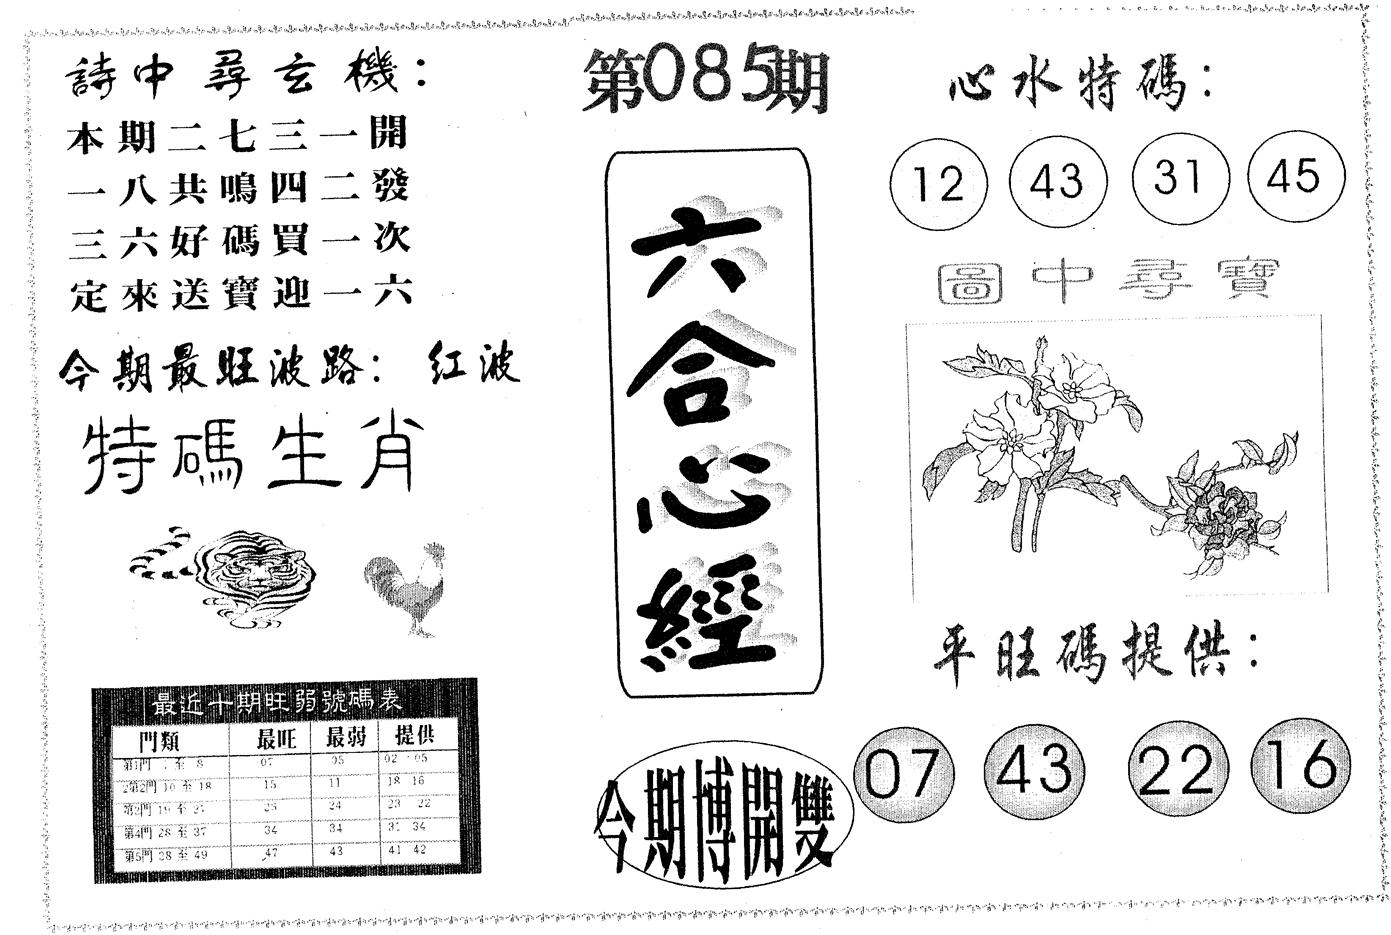 詩中尋玄機：
本期二七三一開
一八共鳴四二發
三六好碼買一次
定來送寶迎一六
今期最旺波路：红波
特碼生肖
最近十期旺弱號碼表
門類 最旺 最弱 提供
至 8 07 05 02 05
第2門 10 至 18 15 11 18 16
至 25 24 23 22
第4門 28 至 37 34 34 31 34
第5門 38 至 49 47 43 41 42
第085期
六合心經
今期博開雙
心水特碼：
12 43 31 45
圖中尋寶
平旺碼提供：
07 43 22 16